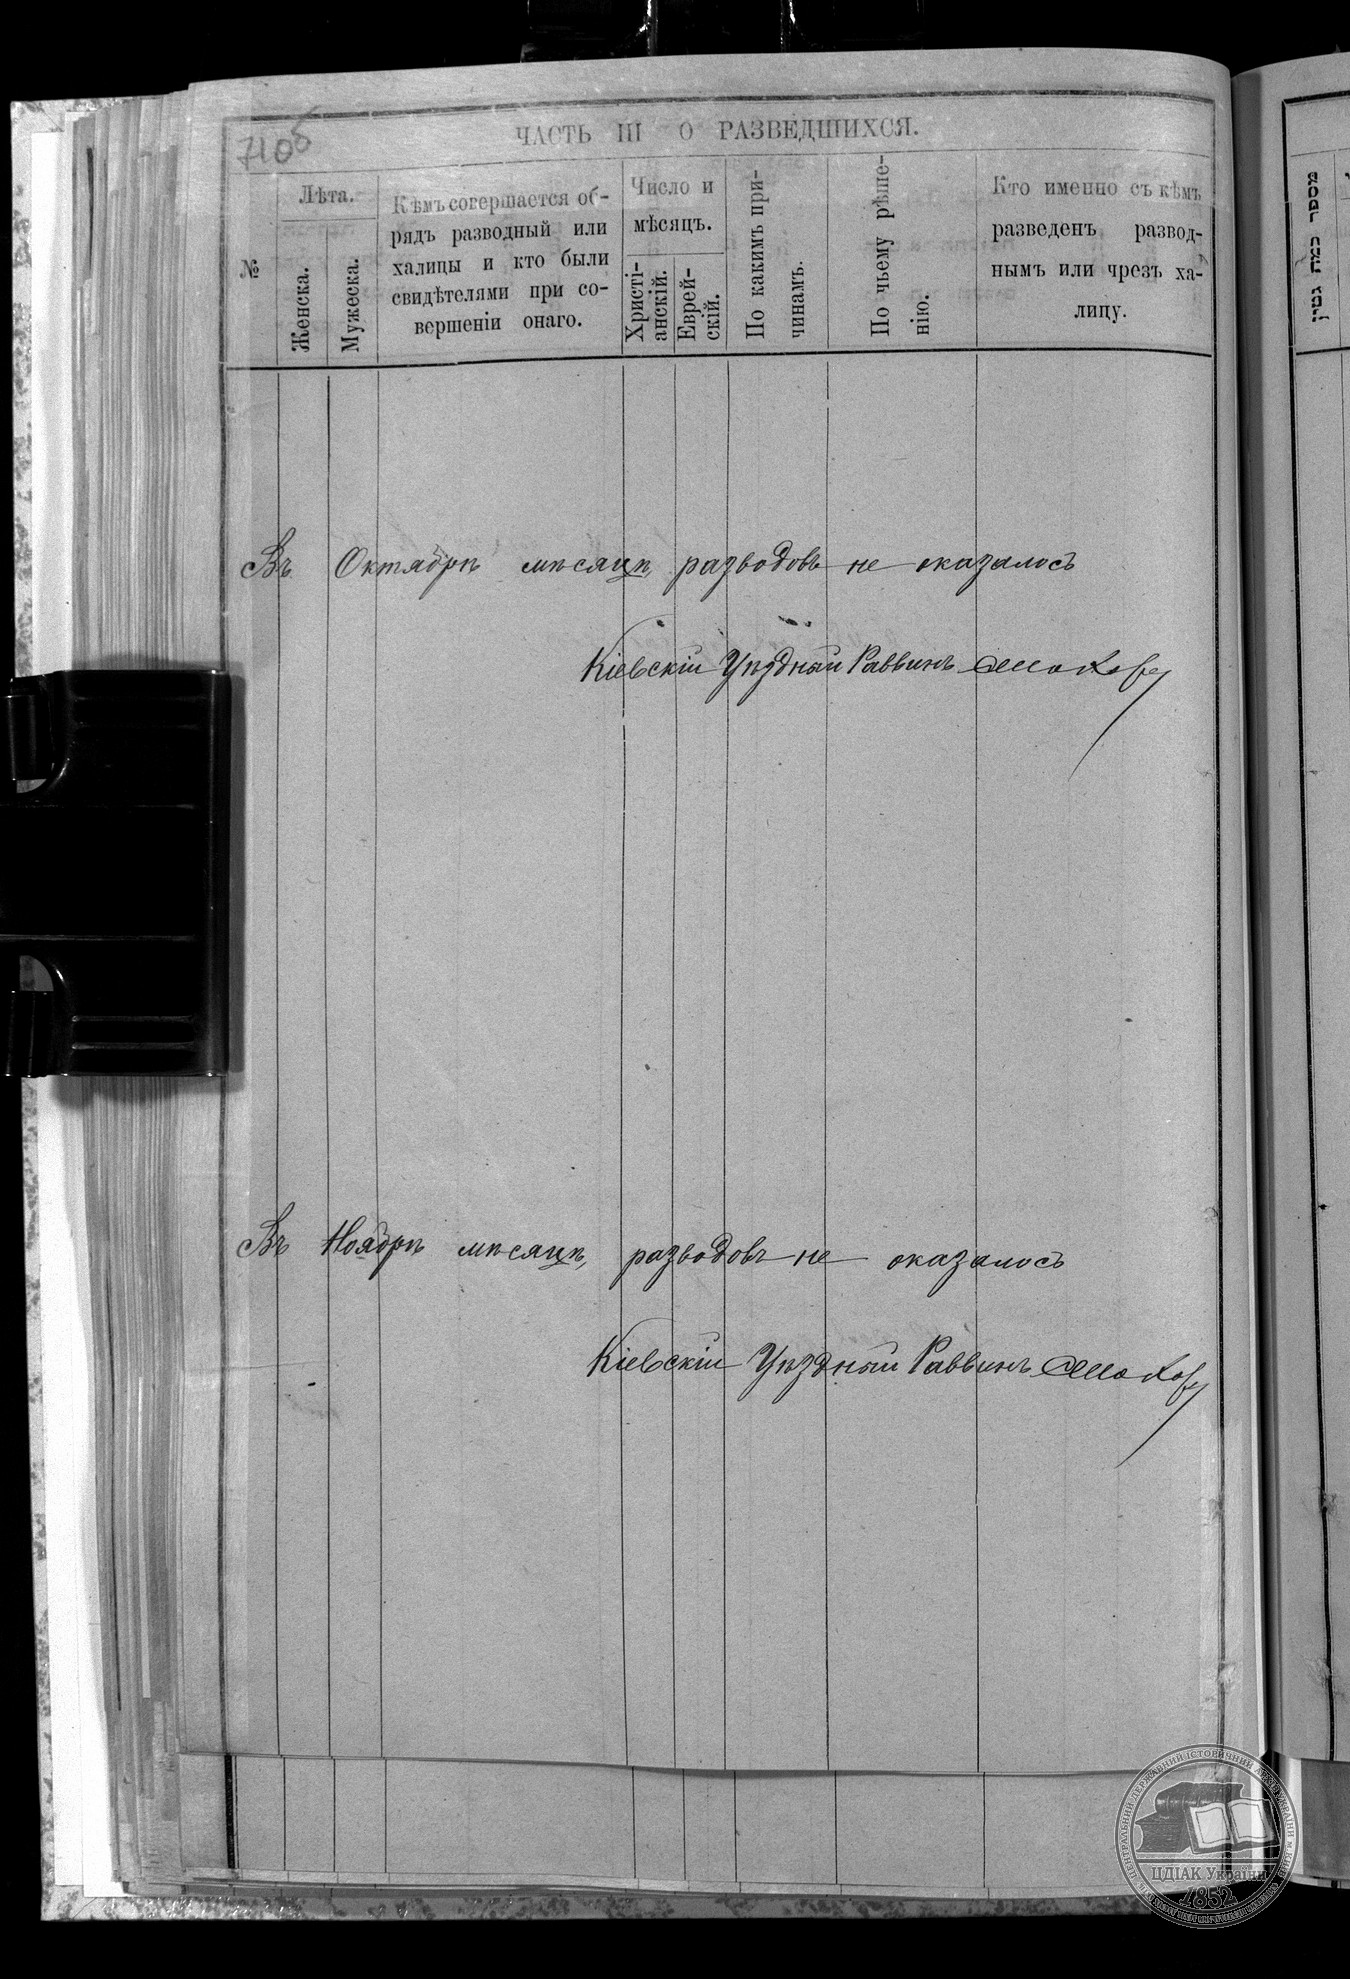 710об
ЧАСТЬ III О РАЗВЕДШИХСЯ.
№
Лѣта.
Женска.
Мужеска.
Кѣмъ совершается об-
рядъ разводный или
халицы и кто были
свидѣтелями при со-
вершеніи онаго.
Число и
мѣсяцъ.
Христі-
анскій.
Еврей-
скій.
По какимъ при-
чинамъ.
По чьему рѣше-
нію.
Кто именно съ кѣмъ
разведенъ развод-
нымъ или чрезъ ха-
лицу.
מספר כמה גטין
Въ Октябрѣ мѣсяцѣ, разводовъ не оказалось
Кіевскій Уѣздный Раввинъ
Въ Ноябрѣ мѣсяцѣ, разводовъ не оказалось
Кіевскій Уѣздный Раввинъ
ЦЕНТРАЛЬНИЙ ДЕРЖАВНИЙ ІСТОРИЧНИЙ АРХІВ УКРАЇНИ м. КИЇВ
ЦДІАК України
1852